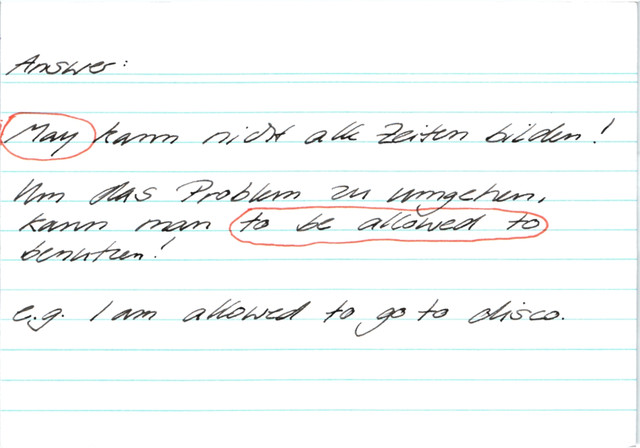 Answer:
May kann nicht alle Zeiten bilden!
Um das Problem zu umgehen,
kann man to be allowed to
benutzen!
e.g. I am allowed to go to disco.